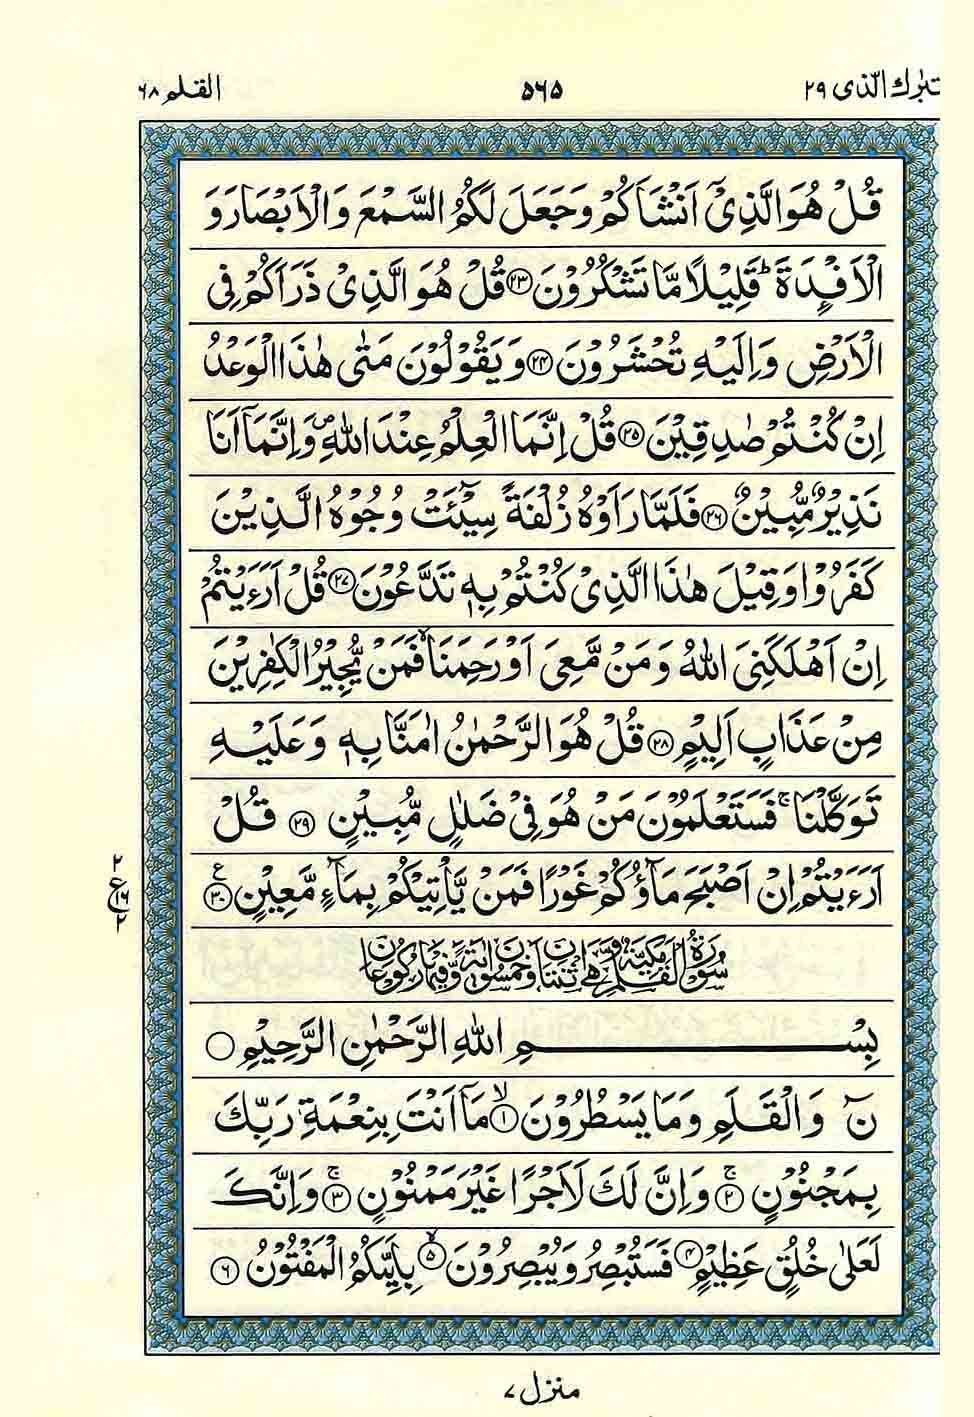 تبٰرك الّذى ٢٩
٥٦٥
القلم ٦٨
قُلْ هُوَ الَّذِىْۤ اَنْشَاَكُمْ وَجَعَلَ لَكُمُ السَّمْعَ وَالْاَبْصَارَ وَ
الْاَفْـِٕدَةَ ؕ قَلِيْلًا مَّا تَشْكُرُوْنَ ﴿٢٣﴾ قُلْ هُوَ الَّذِىْ ذَرَاَكُمْ فِى
الْاَرْضِ وَاِلَيْهِ تُحْشَرُوْنَ ﴿٢٤﴾ وَيَقُوْلُوْنَ مَتٰى هٰذَا الْوَعْدُ
اِنْ كُنْتُمْ صٰدِقِيْنَ ﴿٢٥﴾ قُلْ اِنَّمَا الْعِلْمُ عِنْدَ اللّٰهِ ۪ وَاِنَّمَاۤ اَنَا
نَذِيْرٌ مُّبِيْنٌ ﴿٢٦﴾ فَلَمَّا رَاَوْهُ زُلْفَةً سِيْٓـَٔتْ وُجُوْهُ الَّذِيْنَ
كَفَرُوْا وَقِيْلَ هٰذَا الَّذِىْ كُنْتُمْ بِهٖ تَدَّعُوْنَ ﴿٢٧﴾ قُلْ اَرَءَيْتُمْ
اِنْ اَهْلَكَنِىَ اللّٰهُ وَمَنْ مَّعِىَ اَوْ رَحِمَنَا ۙ فَمَنْ يُّجِيْرُ الْكٰفِرِيْنَ
مِنْ عَذَابٍ اَلِيْمٍ ﴿٢٨﴾ قُلْ هُوَ الرَّحْمٰنُ اٰمَنَّا بِهٖ وَعَلَيْهِ
تَوَكَّلْنَا ۚ فَسَتَعْلَمُوْنَ مَنْ هُوَ فِىْ ضَلٰلٍ مُّبِيْنٍ ﴿٢٩﴾ قُلْ
اَرَءَيْتُمْ اِنْ اَصْبَحَ مَآؤُكُمْ غَوْرًا فَمَنْ يَّاْتِيْكُمْ بِمَآءٍ مَّعِيْنٍ ﴿٣٠﴾ ع
٢
ع
١٦
٢
سُوْرَةُ الْقَلَمِ مَكِّيَّةٌ وَّهِىَ ثِنْتَانِ وَخَمْسُوْنَ اٰيَةً وَّفِيْهَا رُكُوْعَانِ
بِسْمِ اللّٰهِ الرَّحْمٰنِ الرَّحِيْمِ
نٓ وَالْقَلَمِ وَمَا يَسْطُرُوْنَ ۙ ﴿١﴾ مَاۤ اَنْتَ بِنِعْمَةِ رَبِّكَ
بِمَجْنُوْنٍ ۚ ﴿٢﴾ وَاِنَّ لَكَ لَاَجْرًا غَيْرَ مَمْنُوْنٍ ۚ ﴿٣﴾ وَاِنَّكَ
لَعَلٰى خُلُقٍ عَظِيْمٍ ﴿٤﴾ فَسَتُبْصِرُ وَيُبْصِرُوْنَ ۙ ﴿٥﴾ بِاَيِّكُمُ الْمَفْتُوْنُ ﴿٦﴾
منزل ٧